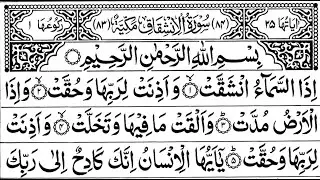 اٰیَاتُهَا ۲۵ (۸۴) سُوْرَةُ الْاِنْشِقَاقِ مَكِّيَّةٌ (۸۳) رُكُوْعُهَا ۱
بِسْمِ اللّٰهِ الرَّحْمٰنِ الرَّحِيْمِ
اِذَا السَّمَآءُ انْشَقَّتْ ۙ۱ وَاَذِنَتْ لِرَبِّهَا وَحُقَّتْ ۙ۲ وَاِذَا
الْاَرْضُ مُدَّتْ ۙ۳ وَاَلْقَتْ مَا فِيْهَا وَتَخَلَّتْ ۙ۴ وَاَذِنَتْ
لِرَبِّهَا وَحُقَّتْ ۙ۵ يٰۤاَيُّهَا الْاِنْسَانُ اِنَّكَ كَادِحٌ اِلٰى رَبِّكَ